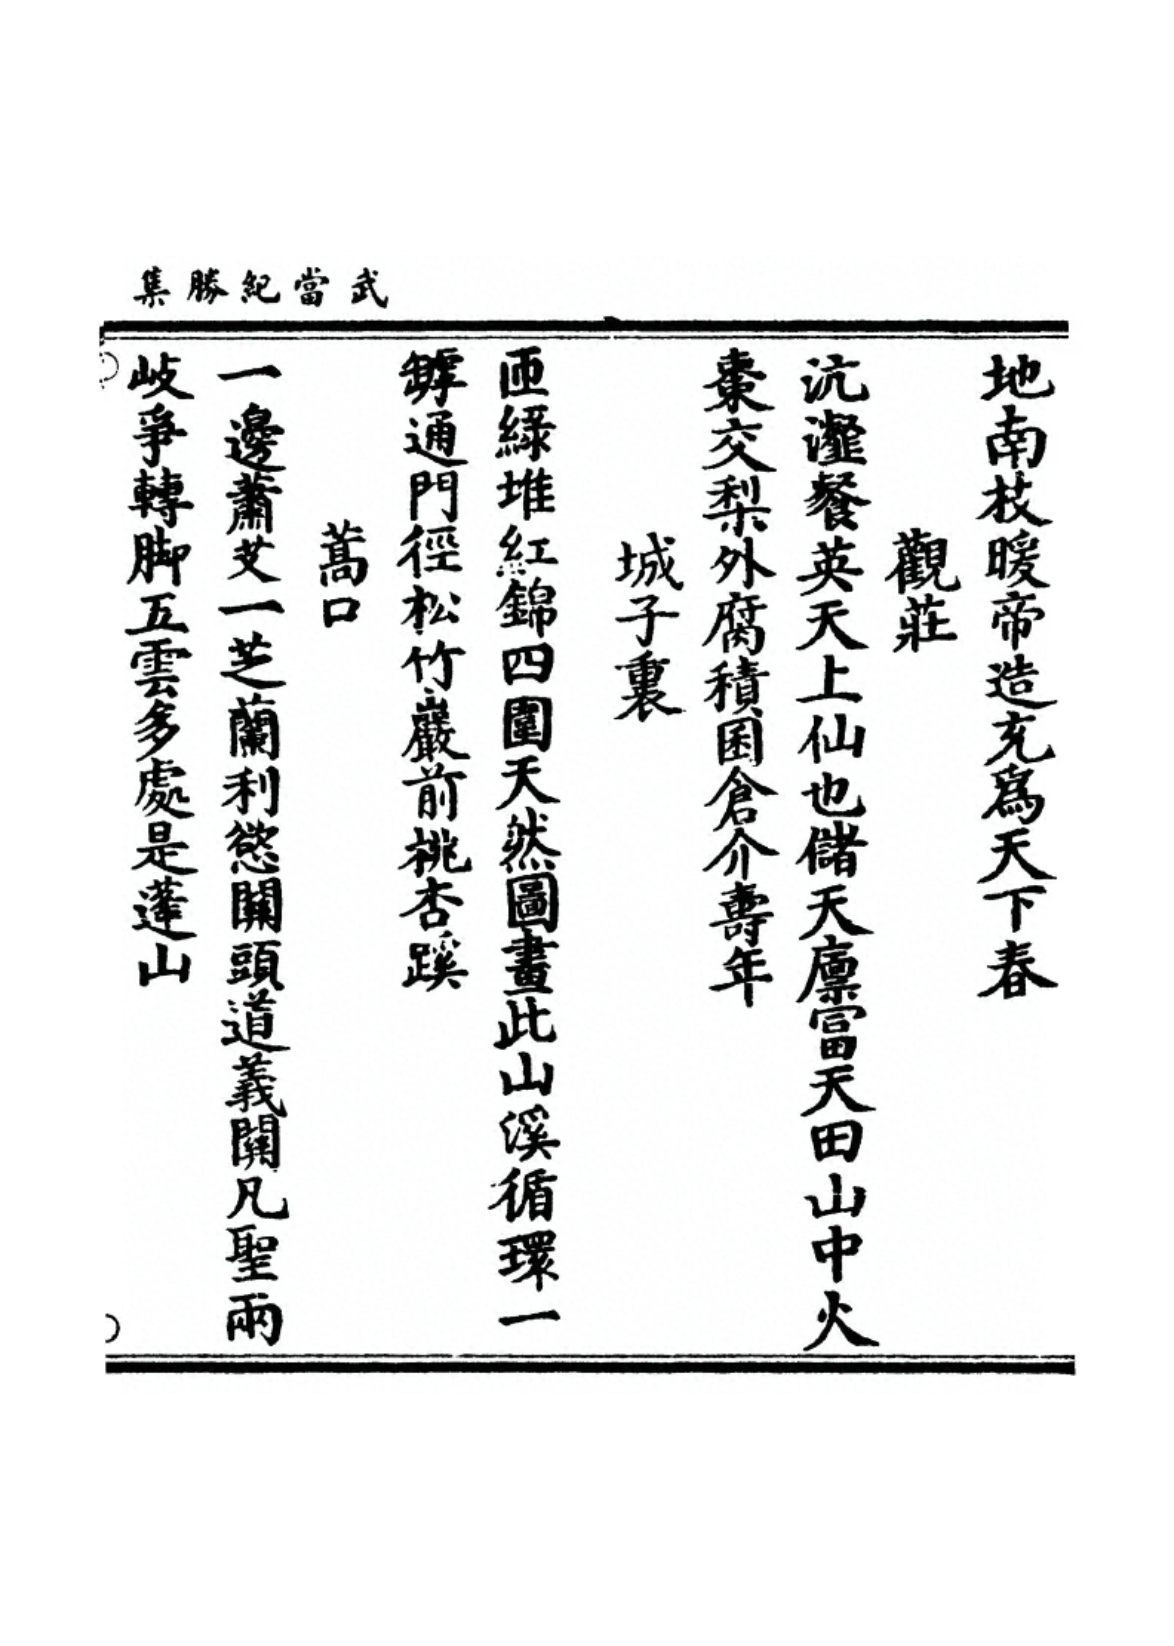 武當紀勝集
地南枝暖帝造充爲天下春
觀莊
沆瀣餐英天上仙也儲天廪富天田山中火
棗交梨外腐積囷倉介壽年
城子裏
匝綠堆紅錦四圍天然圖畫此山溪循環一
罅通門徑松竹巖前桃杏蹊
蒿口
一邊蕭艾一芝蘭利慾關頭道義關凡聖兩
岐爭轉脚五雲多處是蓬山